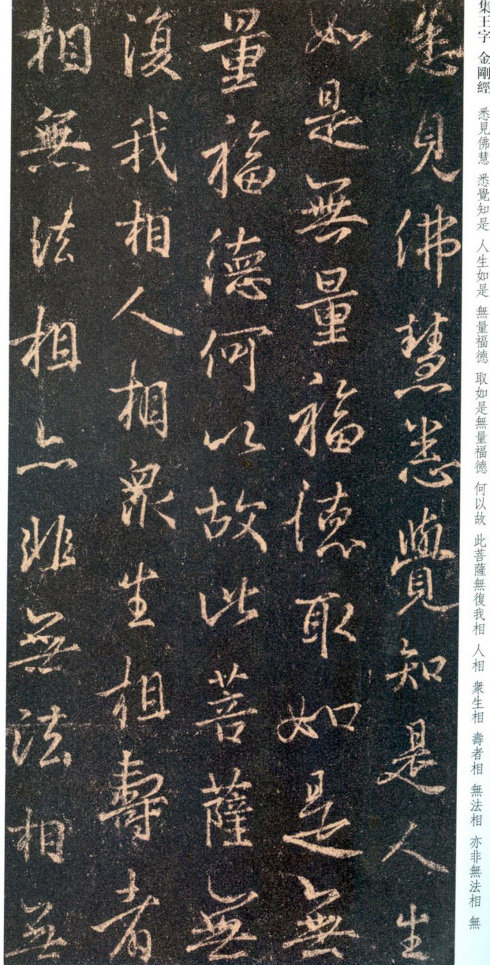 集王字 金剛經 悉見佛慧 悉覺知是 人生如是 無量福德 取如是無量福德 何以故 此菩薩無復我相 人相 衆生相 壽者相 無法相 亦非無法相 無
悉見佛慧悉覺知是人生
如是無量福德取如是無
量福德何以故此菩薩無
復我相人相衆生相壽者
相無法相亦非無法相無